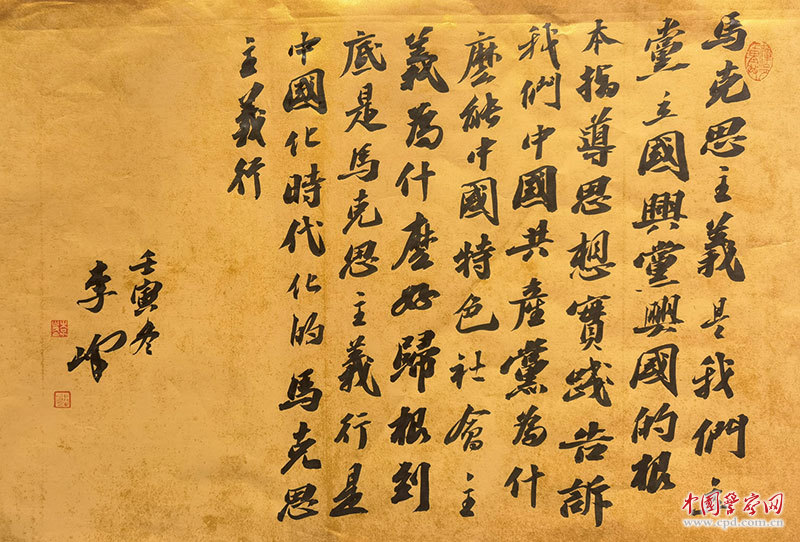 馬克思主義是我們立
黨立國興黨興國的根
本指導思想實踐告訴
我們中國共產黨為什
麼能中國特色社會主
義為什麼好歸根到
底是馬克思主義行是
中國化時代化的馬克思
主義行
壬寅冬
李峰
中国警察网
www.cpd.com.cn